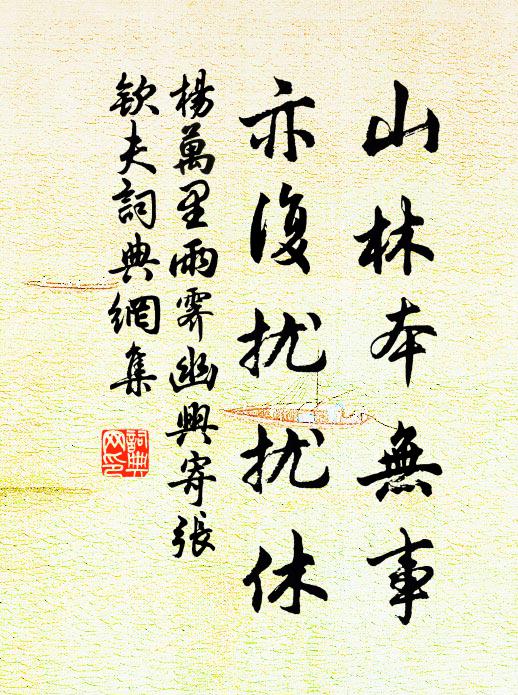 山林本無事
亦復扰扰休
楊萬里雨霽幽興寄張
欽夫詞典網集
詞典
网印